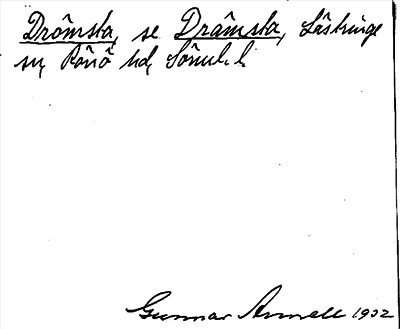 Drômsta, se Drâmsta, Lâstringe
sn, Rönö hd, Sömnl. l.
Gunnar Annell 1932